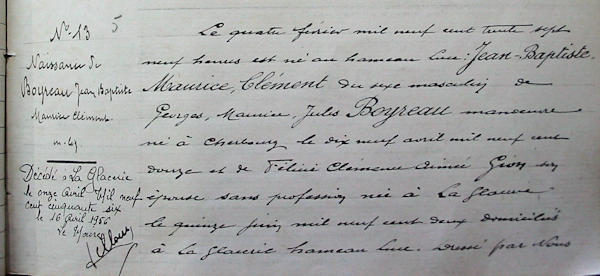 N° 13
5
Naissance de
Boyreau Jean Baptiste
Maurice Clément.
Décédé à La Glacerie
le onze Avril Mil neuf
cent cinquante six
le 16 Avril 1956
Le Maire
Le quatre février mil neuf cent trente sept
neuf heures est né au hameau Luce : Jean-Baptiste
Maurice, Clément du sexe masculin de
Georges, Maurice, Jules Boyreau manœuvre
né à Cherbourg le dix neuf avril mil neuf cent
douze et de Félicie Clémence Aimée Gion son
épouse sans profession née à La Glacerie
le quinze juin mil neuf cent deux domiciliés
à la Glacerie hameau Luce. Dressé par Nous